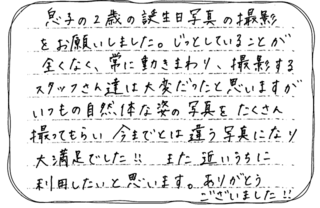 息子の2歳の誕生日写真の撮影
をお願いしました。じっとしていることが
全くなく、常に動きまわり、撮影する
スタッフさん達は大変だったと思いますが
いつもの自然体な姿の写真をたくさん
撮ってもらい今までとは違う写真になり
大満足でした!! また近いうちに
利用したいと思います。ありがとう
ございました!!